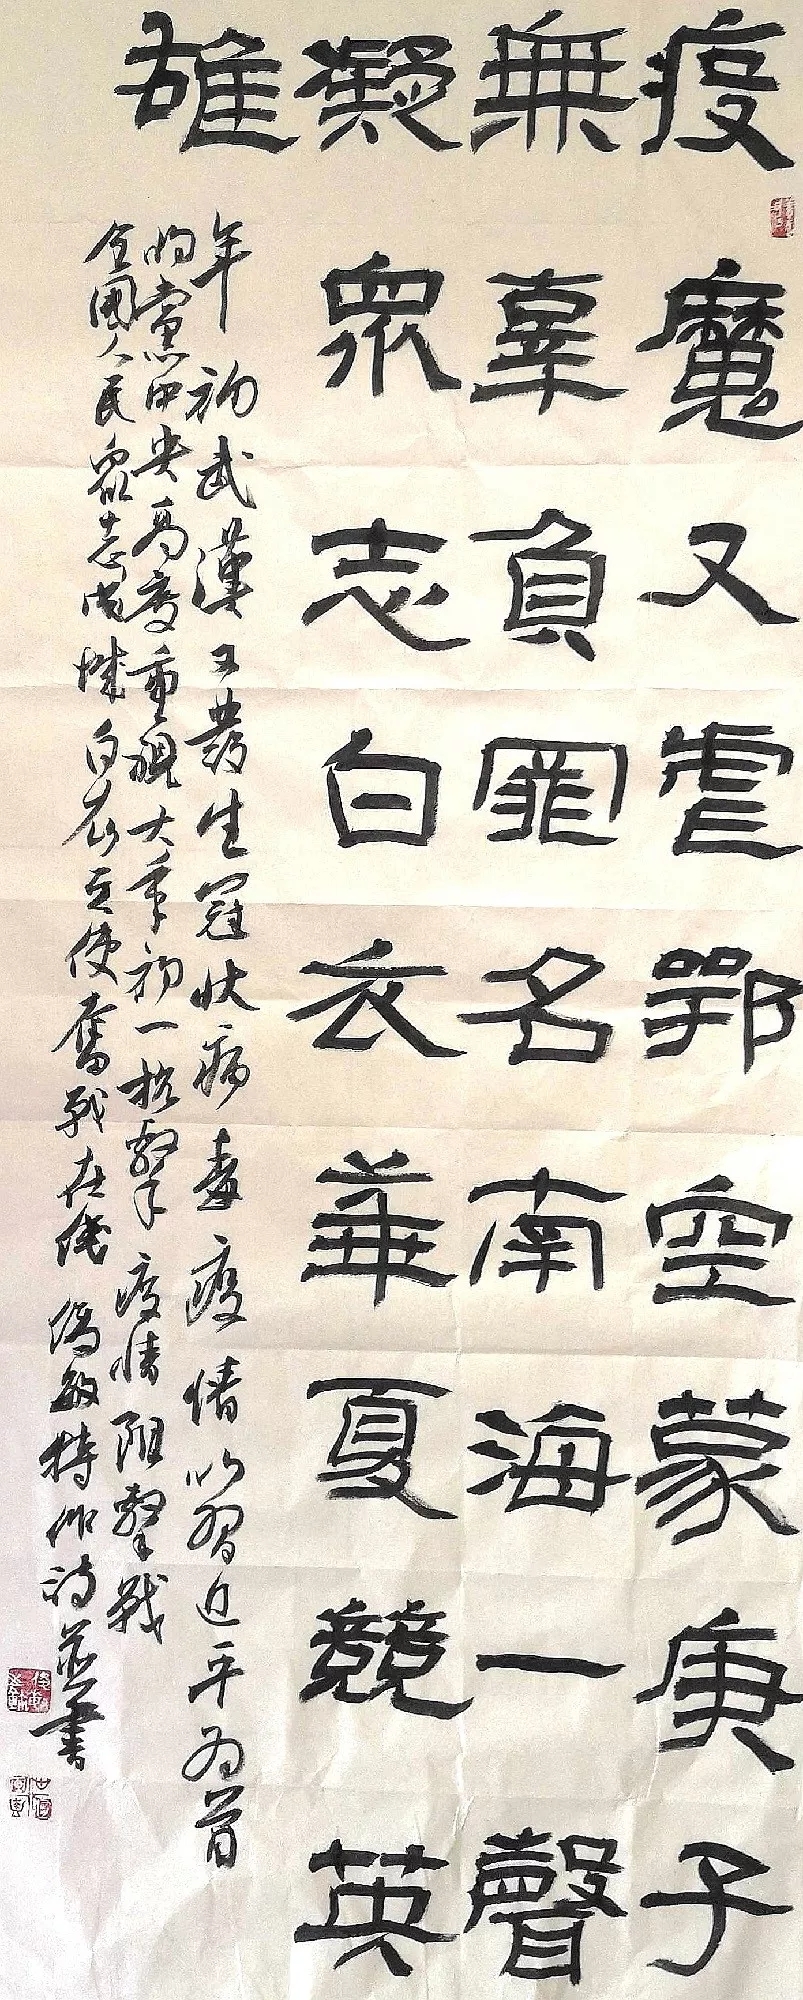 疫魔又虐鄂空蒙庚子
無辜負罪名南海一聲
凝眾志白衣華夏競英
雄
年初武漢又發生冠狀病毒疫情以習近平為首
的黨中央高度重視大年初一抗擊疫情阻擊戰
全國人民眾志成城白衣天使奮戰在线偉敏特作詩並書